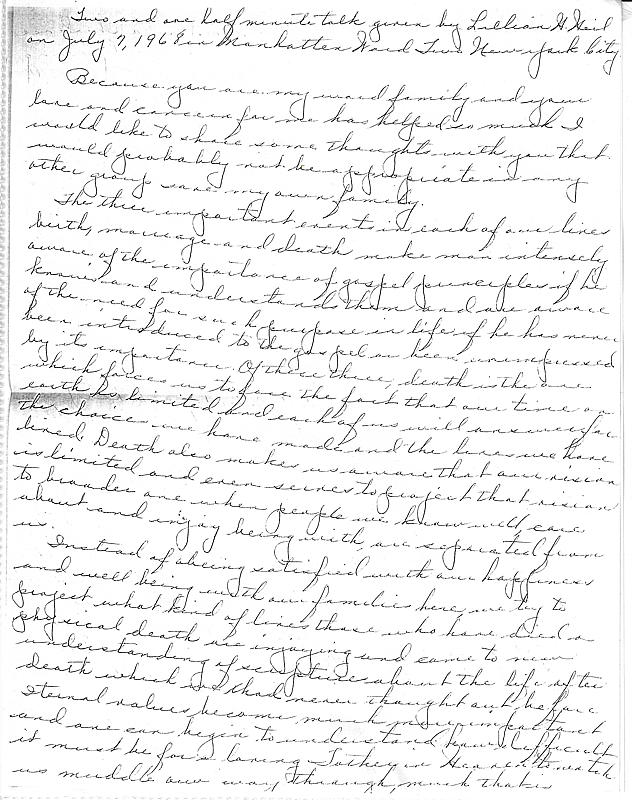 Two and one half minute talk given by Lillian H Heil
on July 7, 1968 in Manhatten Ward Two New york City.
Because you are my ward family and your
love and concern for me has helped so much I
would like to share some thoughts with you that
would probably not be appropriate in any
other group save my own family.
The three important events in each of our lives
birth, marriage and death make man intensely
aware of the importance of gospel principles if he
knows and understands them and are aware
of the need for such purpose in life if he has never
been introduced to the gospel or been unimpressed
by its importance. Of these three, death is the one
which forces us to face the fact that our time on
earth is limited and each of us will answer for
the choices we have made and the lives we have
lived. Death also makes us aware that our vision
is limited and even serves to project that vision
to broader one when people we know well, care
about and injoy being with, are separated from
us.
Instead of being satisfied with our happiness
and well being with our families here, we try to
project what kind of lives those who have died a
physical death are injoying and come to new
understanding of scripture about the life after
death which we had never thought out before
Eternal values become much more important
and one can begin to understand how difficult
it must be for a loving Father in Heaven to watch
us muddle our way through, much that is